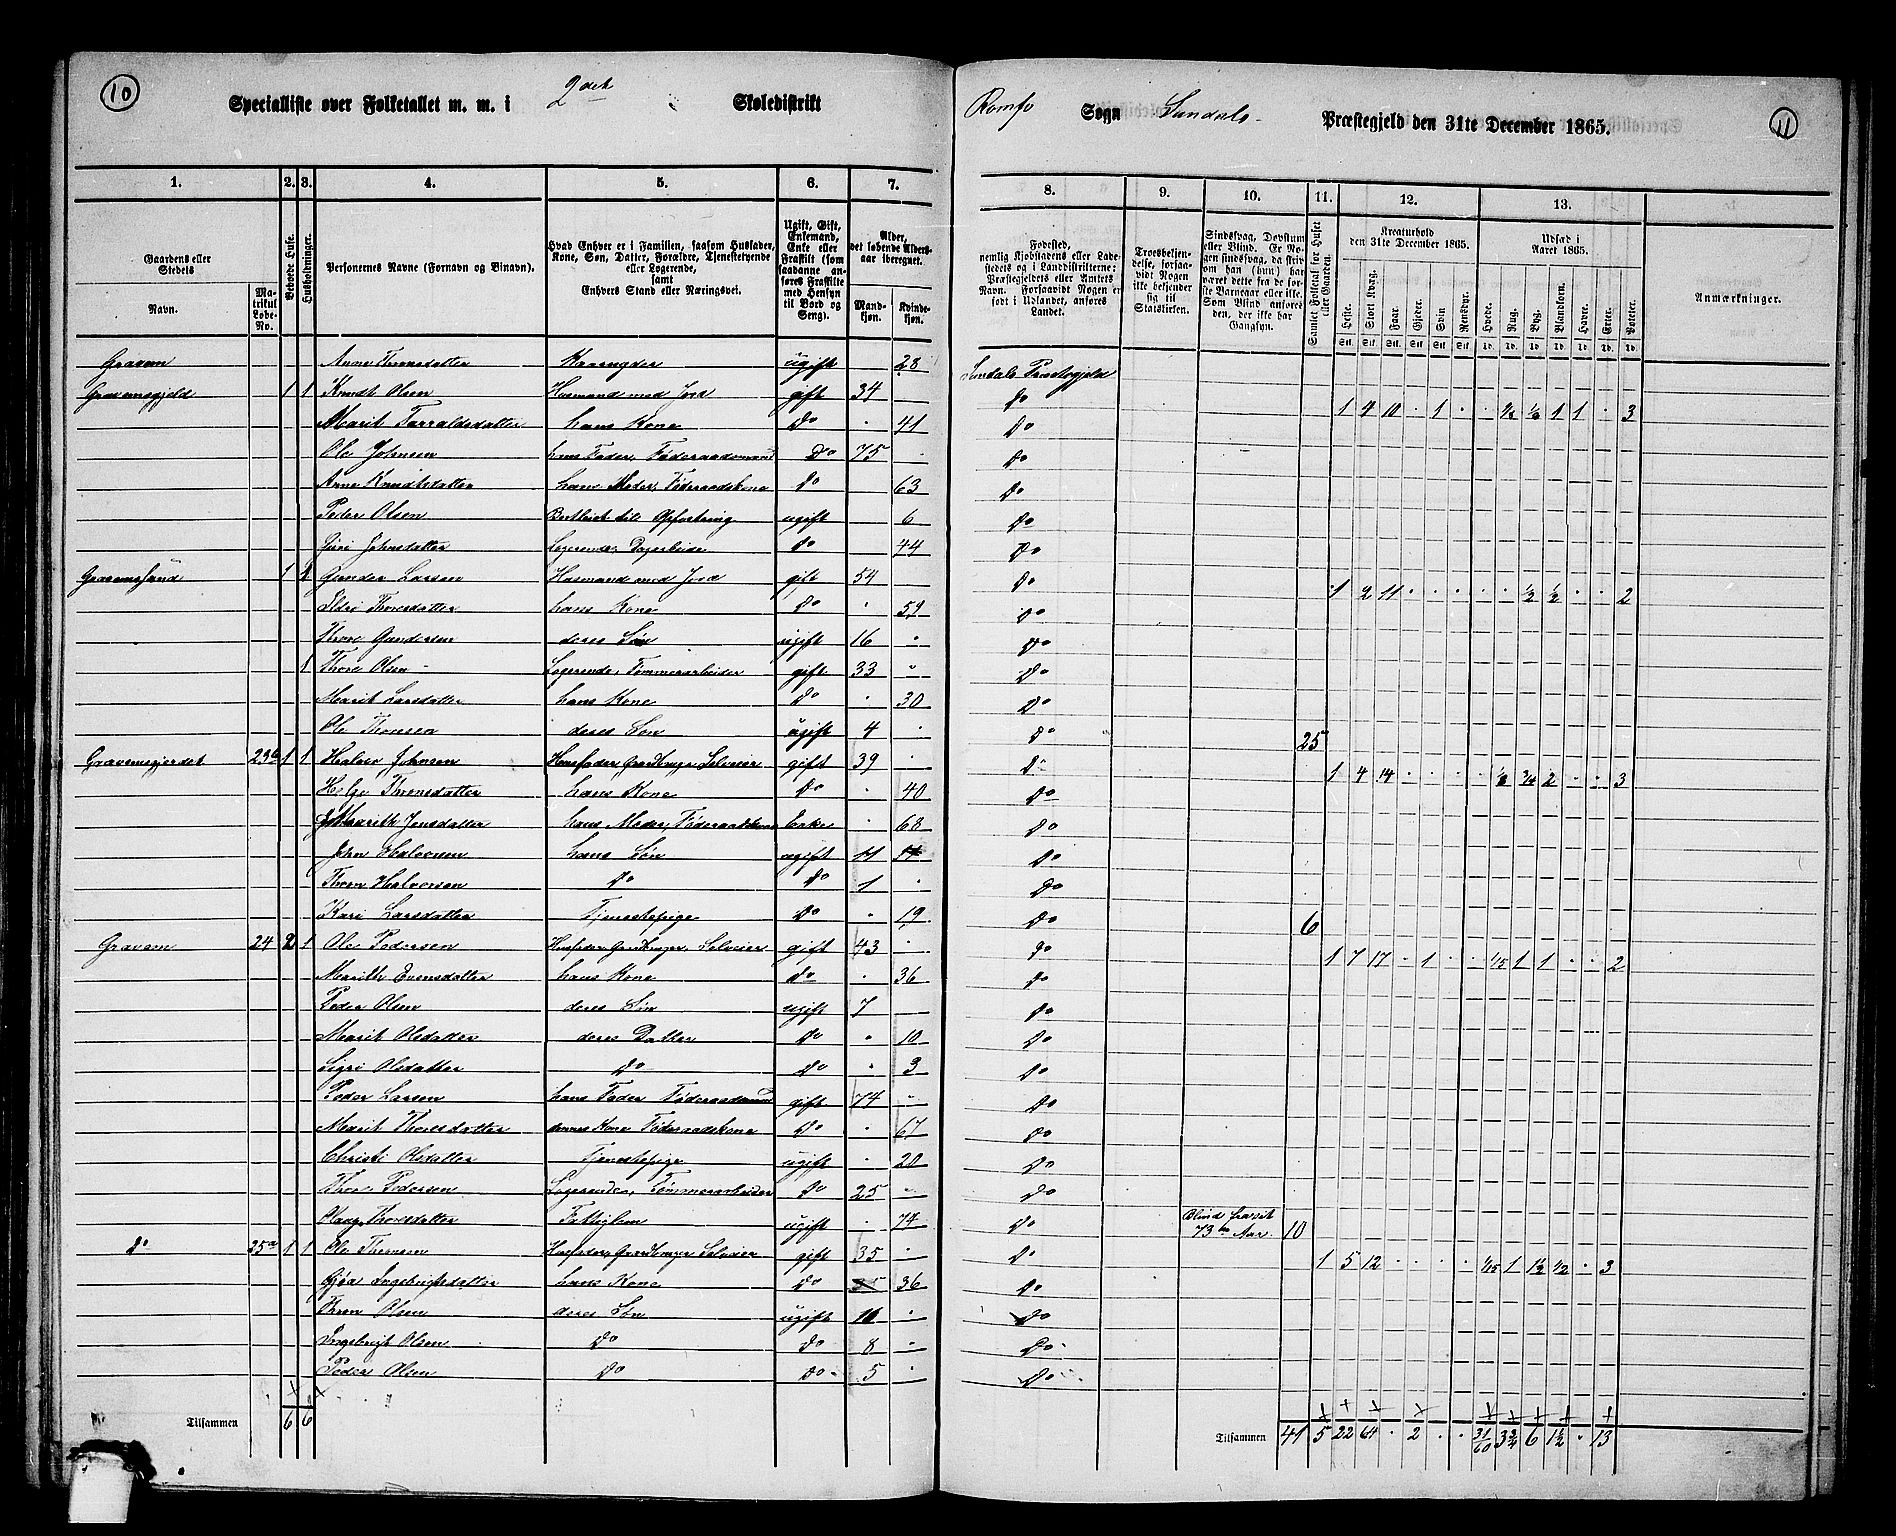 10
Specialliste over Folketallet m. m. i 2det Skoledistrikt
1. 2. 3. 4. 5. 6. 7.
Gaardens eller Stedets
Navn.
Matrikul Løbe-No.
Beboede Huse.
Husholdninger.
Personernes Navne (Fornavn og Binavn).
Hvad Enhver er i Familien, saasom Husfader, Kone, Søn, Datter, Forældre, Tjenestetyende eller Logerende, samt Enhvers Stand eller Næringsvei.
Ugift, Gift, Enkemand, Enke eller Fraskilt (som saadanne anføres Fraskilte med Hensyn til Bord og Seng).
Alder, det løbende Alders-aar iberegnet.
Mand-kjøn. Kvinde-kjøn.
Gravem Anne Thoresdatter ugift 28
Gravemsgjeld 1 1 Knudt Olsen Husmand med Jord gift 34
Marit Tarraldsdatter hans Kone Do 41
Ole Johnsen hans Fader, Føderaadsmand Do 75
Anne Knudtsdatter hans Moder, Føderaadskone Do 63
Peder Olsen Bortleiet til Opfostring ugift 6
Siri Johnsdatter Logerende, Dagarbeide Do 44
Gravemssand 1 1 Gunder Larsen Husmand med Jord gift 54
Eldri Thoresdatter hans Kone Do 59
Thore Gundersen deres Søn ugift 16
1 Thore Olsen Logerende, Tømmerarbeider gift 33
Marit Larsdatter hans Kone Do 30
Ole Thoresen deres Søn ugift 4
Gravemsgjerdet 23b 1 1 Halvor Johnsen Huusfader Gaardbruger Selveier gift 39
Helge Thoresdatter hans Kone Do 40
Marith Jensdatter hans Moder, Føderaadskone Enke 68
John Halvorsen hans Søn ugift 11
Thore Halvorsen Do Do 1
Kari Larsdatter Tjenestepige Do 19
Gravem 24 2 1 Ole Pedersen Husfader, Gaardbruger, Selveier gift 43
Marith Evensdatter hans Kone Do 36
Peder Olsen deres Søn ugift 7
Marit Olsdatter deres Datter Do 10
Sigri Olsdatter Do Do 3
Peder Larsen hans Fader Føderaadsmand gift 74
Marit Thoresdatter dennes Kone Føderaadskone Do 67
Christi Olsdatter Tjenestepige ugift 20
Thore Pedersen Logerende, Tømmerarbeider Do 25
Thoresdatter Fattiglem ugift 74
Do 25a 1 1 Ole Thoresen Husfader, Gaardbruger Selveier gift 35
Gjøa Ingebrigtsdatter hans Kone Do 36
Thore Olsen deres Søn ugift 10
Ingebrigt Olsen Do Do 8
Peder Olsen Do Do 5
Tilsammen 6 6
Romfo Sogn Sundals Præstegjeld den 31te December 1865.
11
8. 9. 10. 11. 12. 13.
Fødested, nemlig Kjøbstadens eller Ladestedets og i Landdistrikterne: Præstegjeldets eller Amtets Navn. Forsaavidt Nogen er født i Udlandet, anføres Landet.
Troesbekjendelse, forsaavidt Nogen ikke bekjender sig til Statskirken.
Sindssvag, Døvstum eller Blind. Er Nogen sindssvag, da tilskrives om han (hun) har været dette fra de første Barneaar eller ikke. Som Blind anføres den, der ikke har Gangsyn.
Samlet Folketal for Huset eller Gaarden.
Kreaturhold den 31te December 1865.
Heste. Stort Kvæg. Faar. Gjeder. Svin. Rensdyr.
Udsæd i Aaret 1865.
Hvede. Rug. Byg. Blandkorn. Havre. Erter. Poteter.
Anmærkninger.
Sundals Præstegjeld
Do 1 4 10 1 1 1 3
Do
Do
Do
Do
Do
Do 1 2 11 ½ ½ 2
Do
Do
Do
Do
Do 25
Do 1 4 14 3/4 2 3
Do
Do
Do
Do
Do 6
Do 1 7 17 1 1/15 1 1 2
Do
Do
Do
Do
Do
Do
Do
Do
Do Blind havt 73 Aar. 10
Do 1 5 12 1/15 1 1½ ½ 3
Do
Do
Do
Do
Tilsammen 41 5 22 64 2 31/60 3 3/4 6 1½ 13